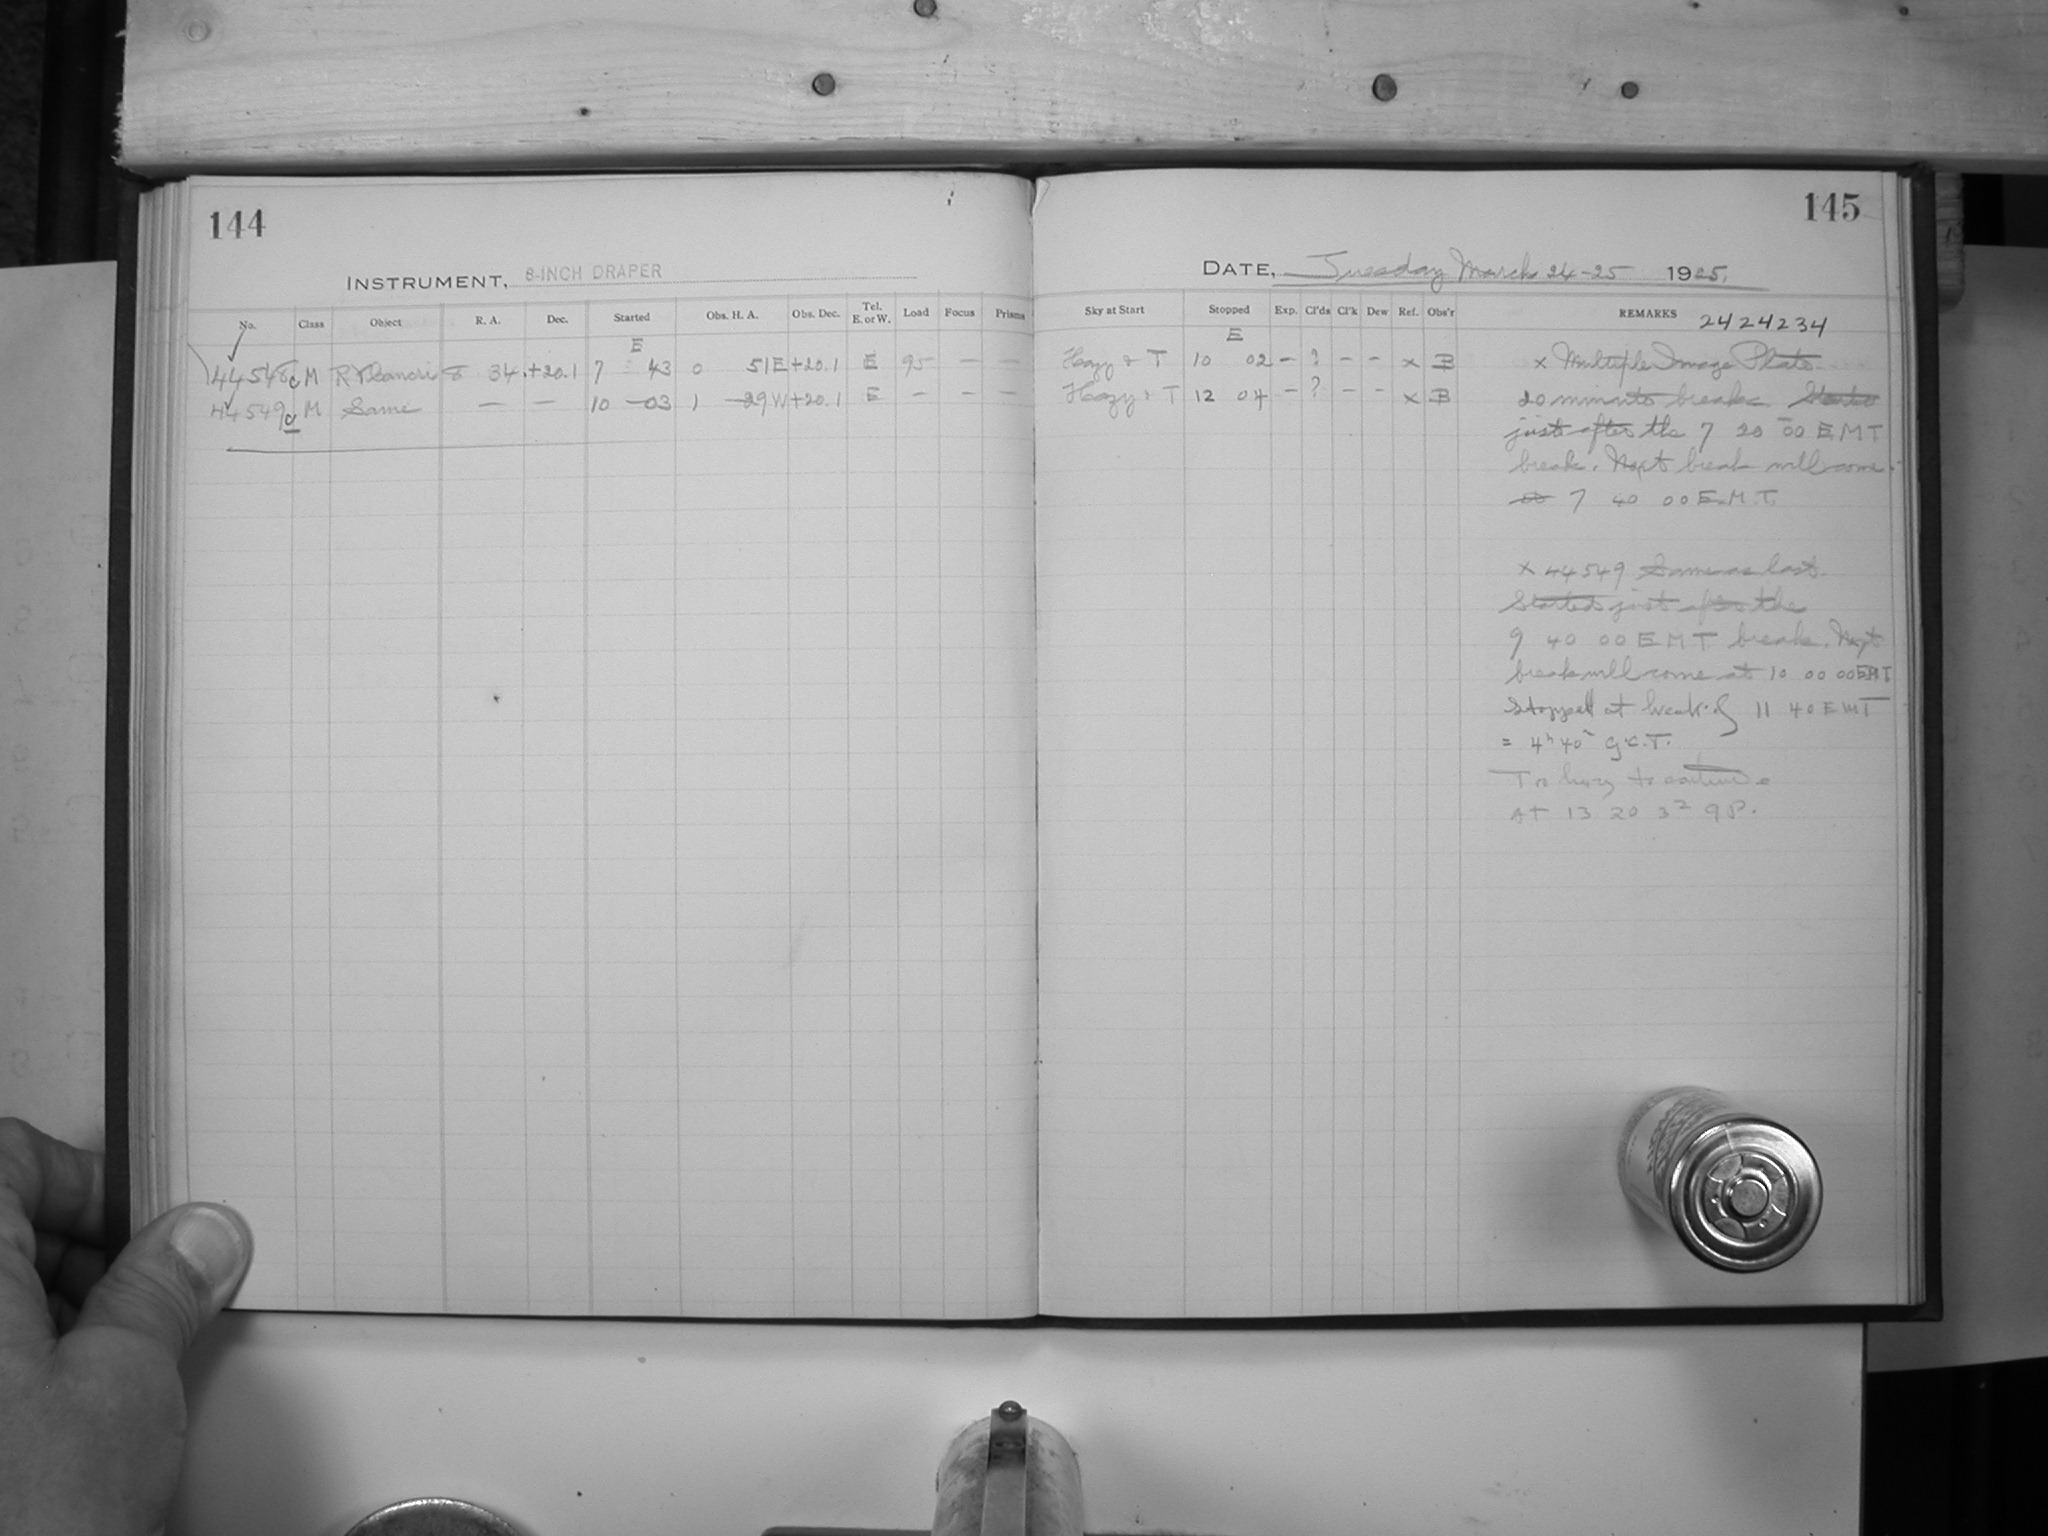 144
INSTRUMENT, 8-INCH DRAPER
No. Class Object R. A. Dec. Started Obs. H. A. Obs. Dec. Tel. E. or W. Load Focus Prisms
E
44548 c M R T Cancri 8 34 +20.1 7 43 0 51E +20.1 E 95 — —
44549 c M Same — — 10 03 1 29W +20.1 E — — —
145
DATE, Tuesday March 24-25 1925.
Sky at Start Stopped Exp. Cl'ds Cl'k Dew Ref. Obs'r REMARKS 2424234
E
Hazy & T 10 02 — ? — — x B x Multiple Image Plate
Hazy & T 12 04 — ? — — x B 20 minute breaks Started
just after the 7 20 00 E M T
break. Next break will come
at 7 40 00 E.M.T.
x 44549 Same as last.
Started just after the
9 40 00 E M T break. Next
break will come at 10 00 00 EMT
Stopped at break of 11 40 E M T
= 4h 40m G.C.T.
Too hazy to continue
AT 13 20 32 9P.